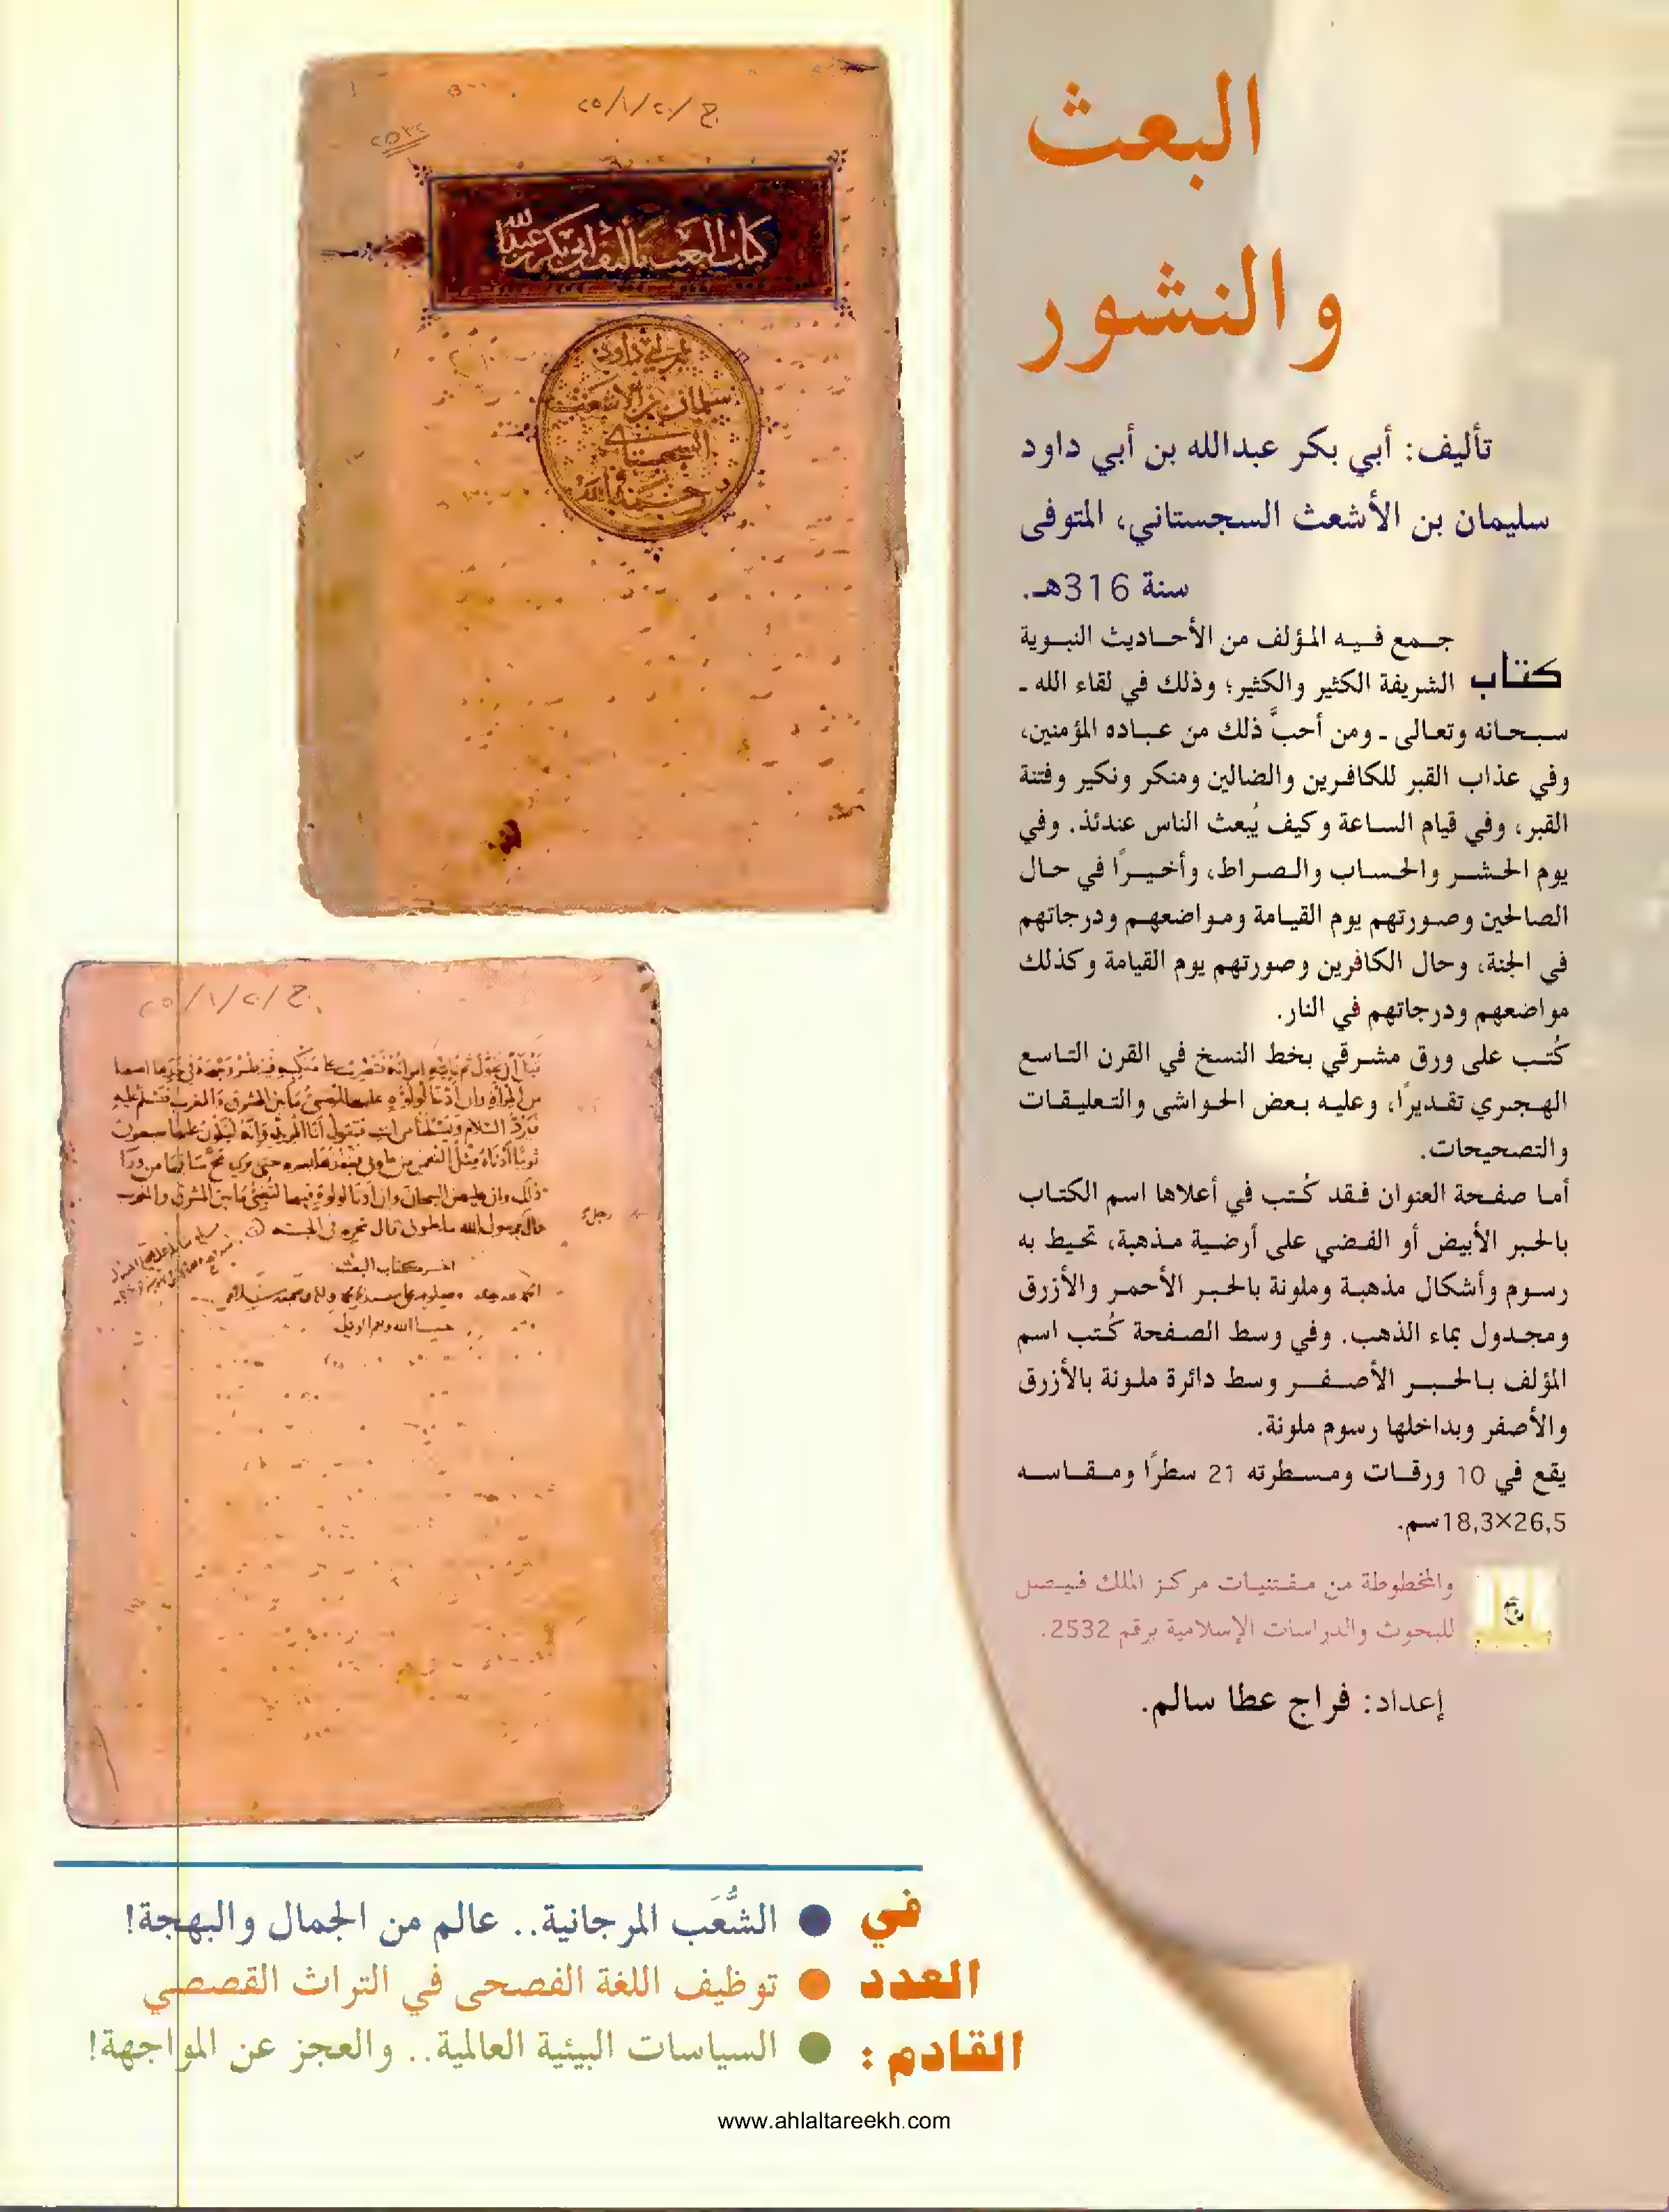 البعث
والنشور
تأليف: أبي بكر عبدالله بن أبي داود
سليمان بن الأشعث السجستاني، المتوفى
سنة 316هـ.
كتاب جمع فيه المؤلف من الأحاديث النبوية
الشريفة الكثير والكثير؛ وذلك في لقاء الله ـ
سبحانه وتعالى ـ ومن أحبَّ ذلك من عباده المؤمنين،
وفي عذاب القبر للكافرين والضالين ومنكر ونكير وفتنة
القبر، وفي قيام الساعة وكيف يُبعث الناس عندئذ. وفي
يوم الحشر والحساب والصراط، وأخيرًا في حال
الصالحين وصورتهم يوم القيامة ومواضعهم ودرجاتهم
في الجنة، وحال الكافرين وصورتهم يوم القيامة وكذلك
مواضعهم ودرجاتهم في النار.
كُتب على ورق مشرقي بخط النسخ في القرن التاسع
الهجري تقديرًا، وعليه بعض الحواشى والتعليقات
والتصحيحات.
أما صفحة العنوان فقد كُتب في أعلاها اسم الكتاب
بالحبر الأبيض أو الفضي على أرضية مذهبة، تحيط به
رسوم وأشكال مذهبة وملونة بالحبر الأحمر والأزرق
ومجدول بماء الذهب. وفي وسط الصفحة كُتب اسم
المؤلف بالحبر الأصفر وسط دائرة ملونة بالأزرق
والأصفر وبداخلها رسوم ملونة.
يقع في 10 ورقات ومسطرته 21 سطرًا ومقاسه
18,3×26,5سم.
والمخطوطة من مقتنيات مركز الملك فيصل
للبحوث والدراسات الإسلامية برقم 2532.
إعداد: فراج عطا سالم.
ح/٢٠/١/٢٥
٢٥٣٢
كتاب البعث تأليف أبي بكر عبد الله
بن أبي داود
سليمان بن الأشعث
السجستاني
رحمة الله
ح/٢٠/١/٢٥
اخر كتاب البعث
في العدد القادم:
● الشُّعَب المرجانية.. عالم من الجمال والبهجة!
● توظيف اللغة الفصحى في التراث القصصي
● السياسات البيئية العالمية.. والعجز عن المواجهة!
www.ahlaltareekh.com